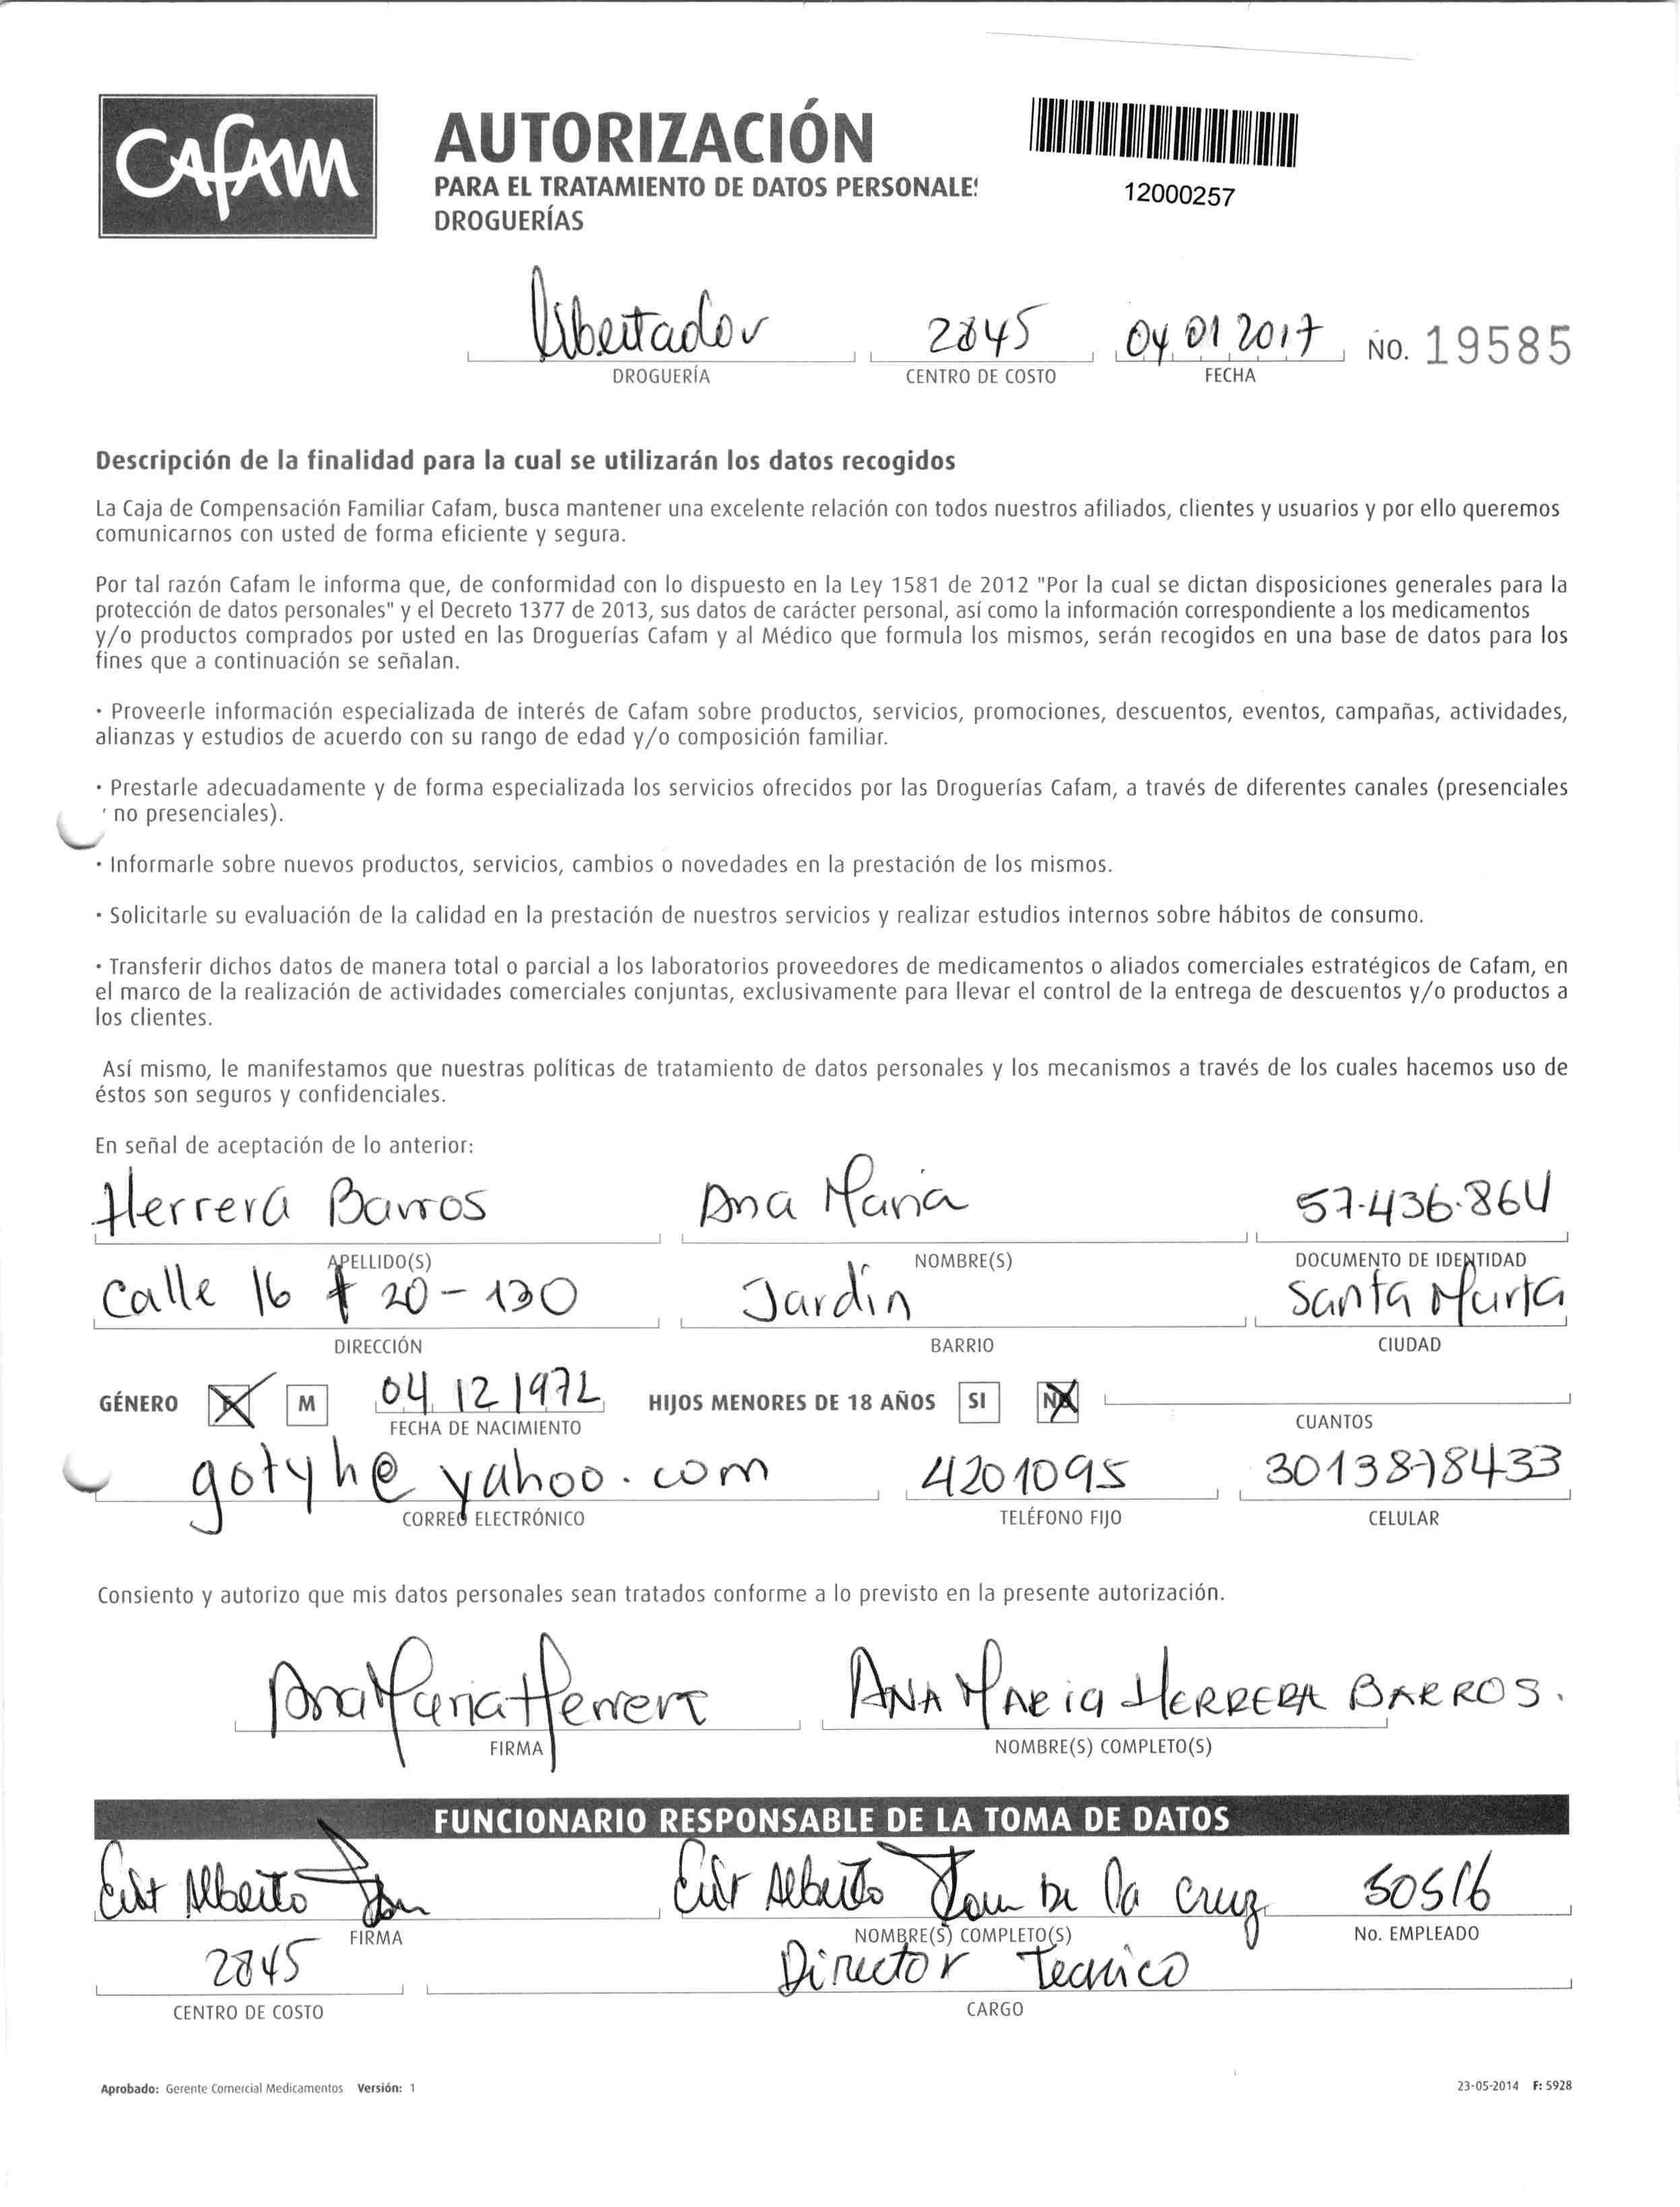 CAFAM
AUTORIZACIÓN
PARA EL TRATAMIENTO DE DATOS PERSONALES
DROGUERÍAS
12000257
Libertador 2845 04 01 2017 NO. 19585
DROGUERÍA CENTRO DE COSTO FECHA
Descripción de la finalidad para la cual se utilizarán los datos recogidos
La Caja de Compensación Familiar Cafam, busca mantener una excelente relación con todos nuestros afiliados, clientes y usuarios y por ello queremos
comunicarnos con usted de forma eficiente y segura.
Por tal razón Cafam le informa que, de conformidad con lo dispuesto en la Ley 1581 de 2012 "Por la cual se dictan disposiciones generales para la
protección de datos personales" y el Decreto 1377 de 2013, sus datos de carácter personal, así como la información correspondiente a los medicamentos
y/o productos comprados por usted en las Droguerías Cafam y al Médico que formula los mismos, serán recogidos en una base de datos para los
fines que a continuación se señalan.
· Proveerle información especializada de interés de Cafam sobre productos, servicios, promociones, descuentos, eventos, campañas, actividades,
alianzas y estudios de acuerdo con su rango de edad y/o composición familiar.
· Prestarle adecuadamente y de forma especializada los servicios ofrecidos por las Droguerías Cafam, a través de diferentes canales (presenciales
no presenciales).
· Informarle sobre nuevos productos, servicios, cambios o novedades en la prestación de los mismos.
· Solicitarle su evaluación de la calidad en la prestación de nuestros servicios y realizar estudios internos sobre hábitos de consumo.
· Transferir dichos datos de manera total o parcial a los laboratorios proveedores de medicamentos o aliados comerciales estratégicos de Cafam, en
el marco de la realización de actividades comerciales conjuntas, exclusivamente para llevar el control de la entrega de descuentos y/o productos a
los clientes.
Así mismo, le manifestamos que nuestras políticas de tratamiento de datos personales y los mecanismos a través de los cuales hacemos uso de
éstos son seguros y confidenciales.
En señal de aceptación de lo anterior:
Herrera Barros Ana Maria 57.436.864
APELLIDO(S) NOMBRE(S) DOCUMENTO DE IDENTIDAD
Calle 16 # 20-130 Jardin Santa Marta
DIRECCIÓN BARRIO CIUDAD
GÉNERO F M 04 12 1972 HIJOS MENORES DE 18 AÑOS SI NO
FECHA DE NACIMIENTO CUANTOS
gotyh@yahoo.com 4201095 3013878433
CORREO ELECTRÓNICO TELÉFONO FIJO CELULAR
Consiento y autorizo que mis datos personales sean tratados conforme a lo previsto en la presente autorización.
Ana Maria Herrera ANA MARIA HERRERA BARROS.
FIRMA NOMBRE(S) COMPLETO(S)
FUNCIONARIO RESPONSABLE DE LA TOMA DE DATOS
Alberto Alberto De la Cruz 50516
FIRMA NOMBRE(S) COMPLETO(S) No. EMPLEADO
2845 Director Tecnico
CENTRO DE COSTO CARGO
Aprobado: Gerente Comercial Medicamentos Versión: 1 23-05-2014 F: 5928